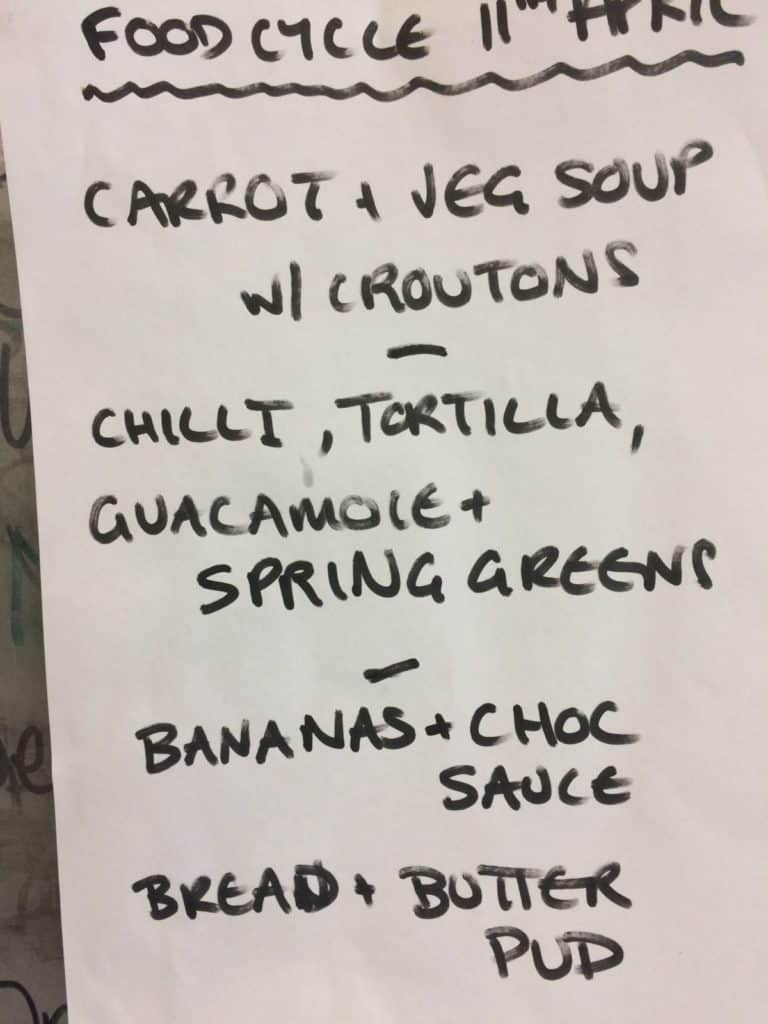 FOOD CYCLE 11TH APRIL
CARROT + VEG SOUP
W/ CROUTONS
–
CHILLI, TORTILLA,
GUACAMOLE +
SPRING GREENS
–
BANANAS + CHOC
SAUCE
BREAD + BUTTER
PUD